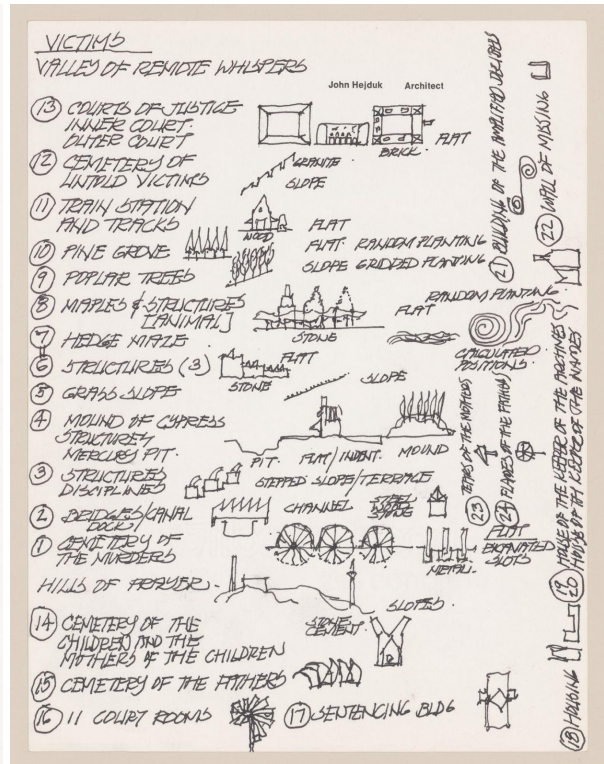 VICTIMS
VALLEY OF REMOTE WHISPERS
John Hejduk Architect
13 COURTS OF JUSTICE
INNER COURT.
OUTER COURT
BRICK.
FLAT
12 CEMETERY OF
UNTOLD VICTIMS
GRANITE
SLOPE
11 TRAIN STATION
AND TRACKS
WOOD
FLAT
10 PINE GROVE
FLAT. RANDOM PLANTING
9 POPLAR TREES
SLOPE GRIDDED PLANTING
8 MAPLES & STRUCTURES
[ANIMAL]
STONE
FLAT
RANDOM PLANTING
7 HEDGE MAZE
CALCULATED
POSITIONS.
6 STRUCTURES (3)
FLAT
STONE
5 GRASS SLOPE
SLOPE
4 MOUND OF CYPRESS
STRUCTURES
MERCURY PIT.
PIT. FLAT/INDENT. MOUND
3 STRUCTURES
DISCIPLINES
STEPPED SLOPE/TERRACE
2 BRIDGES/CANAL
DOCKS/
CHANNEL
STEEL
WOOD
1 CEMETERY OF
THE MURDERS
METAL.
FLAT
EXCAVATED
SLOTS
HILLS OF PRAYER.
SLOPES.
14 CEMETERY OF THE
CHILDREN AND THE
MOTHERS OF THE CHILDREN
STONE
CEMENT.
15 CEMETERY OF THE FATHERS
16 11 COURT ROOMS
17 SENTENCING BLDG
18 HOLDING
19 HOUSE OF THE KEEPER OF THE ARCHIVES
20 HOUSE OF THE KEEPER OF THE NAMES
21 BUILDING OF THE AMPLIFIED DECIBELS
22 WALL OF MISSING
23 TEARS OF THE MOTHERS
24 FLARES OF THE FATHERS